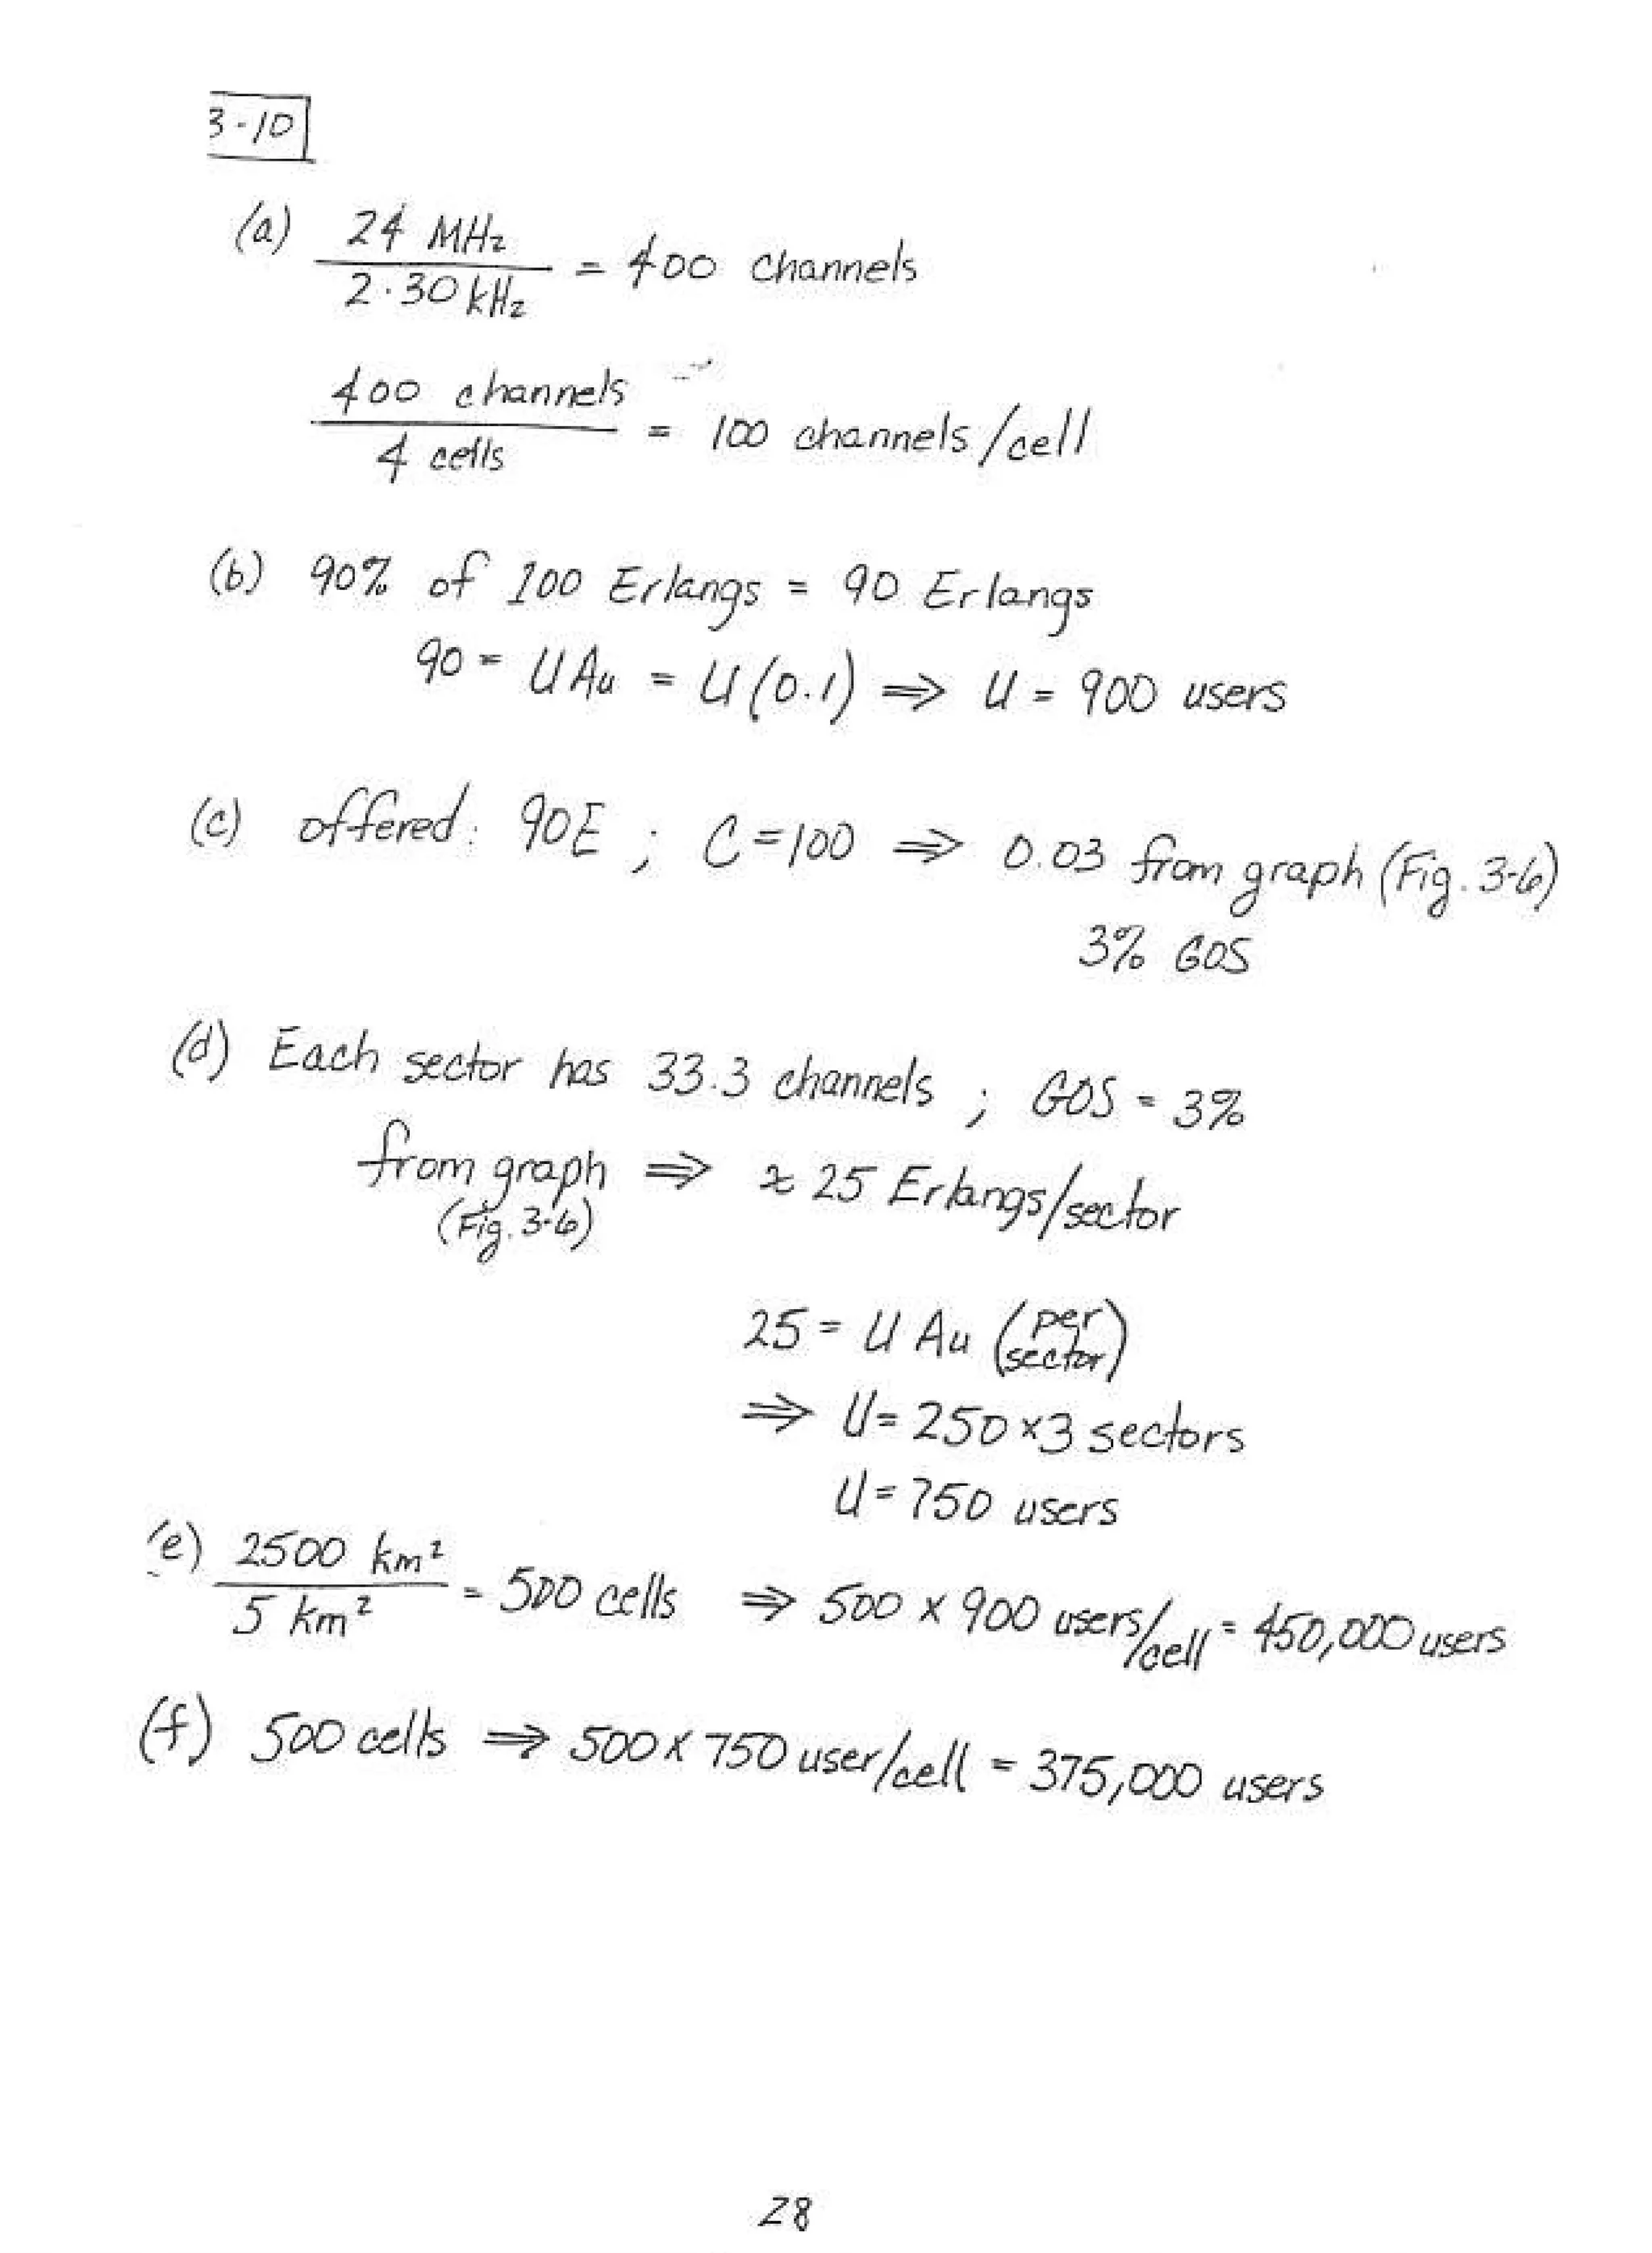 3-10
(a) 24 MHz / 2·30 kHz = 400 channels
400 channels / 4 cells = 100 channels/cell
(b) 90% of 100 Erlangs = 90 Erlangs
90 = U Au = U(0.1) ⇒ U = 900 users
(c) offered: 90E ; C=100 ⇒ 0.03 from graph (Fig. 3-6)
3% GOS
(d) Each sector has 33.3 channels ; GOS = 3%
from graph ⇒ ≈ 25 Erlangs/sector
(Fig. 3-6)
25 = U Au (per sector)
⇒ U= 250 ×3 sectors
U = 750 users
(e) 2500 km² / 5 km² = 500 cells ⇒ 500 × 900 users/cell = 450,000 users
(f) 500 cells ⇒ 500 × 750 user/cell = 375,000 users
28